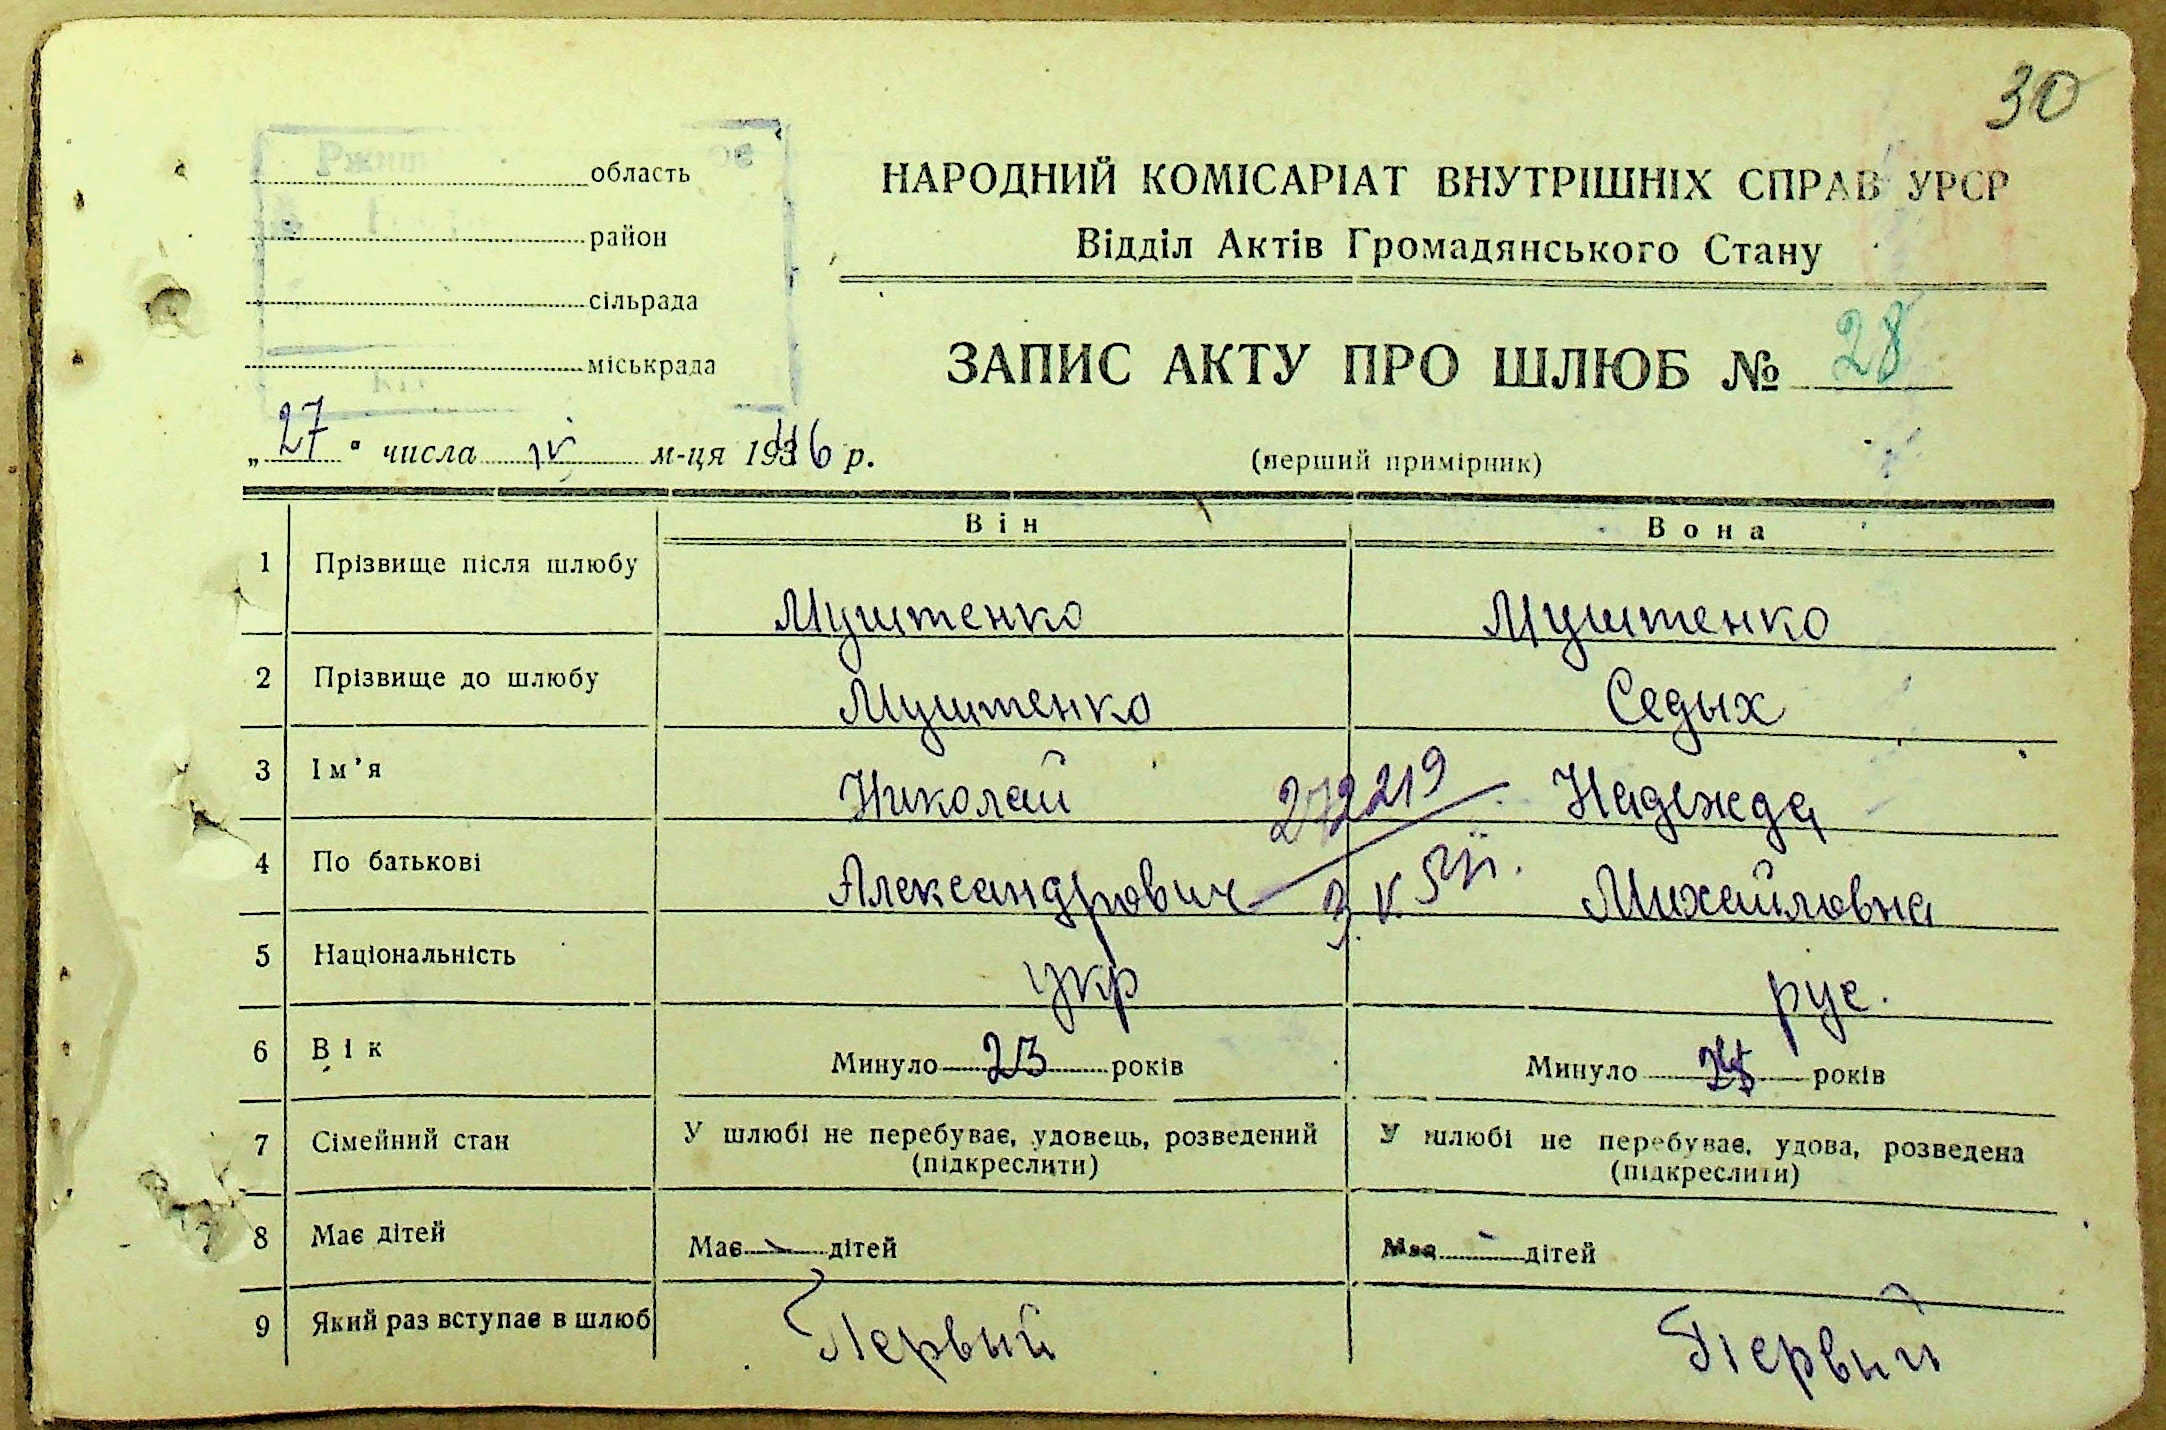 30
Ржищ
область
район
сільрада
міськрада
НАРОДНИЙ КОМІСАРІАТ ВНУТРІШНІХ СПРАВ УРСР
Відділ Актів Громадянського Стану
ЗАПИС АКТУ ПРО ШЛЮБ № 28
„27" числа IV м-ця 1946 р.
(перший примірник)
Він Вона
1 Прізвище після шлюбу Муштенко Муштенко
2 Прізвище до шлюбу Муштенко Седых
3 Ім'я Николай Надежда
272219
4 По батькові Александрович Михайловна
5 Національність укр рус.
6 Вік Минуло 23 років Минуло років
7 Сімейний стан У шлюбі не перебуває, удовець, розведений У шлюбі не перебуває, удова, розведена
(підкреслити) (підкреслити)
8 Має дітей Має - дітей Має - дітей
9 Який раз вступає в шлюб Первый Первый